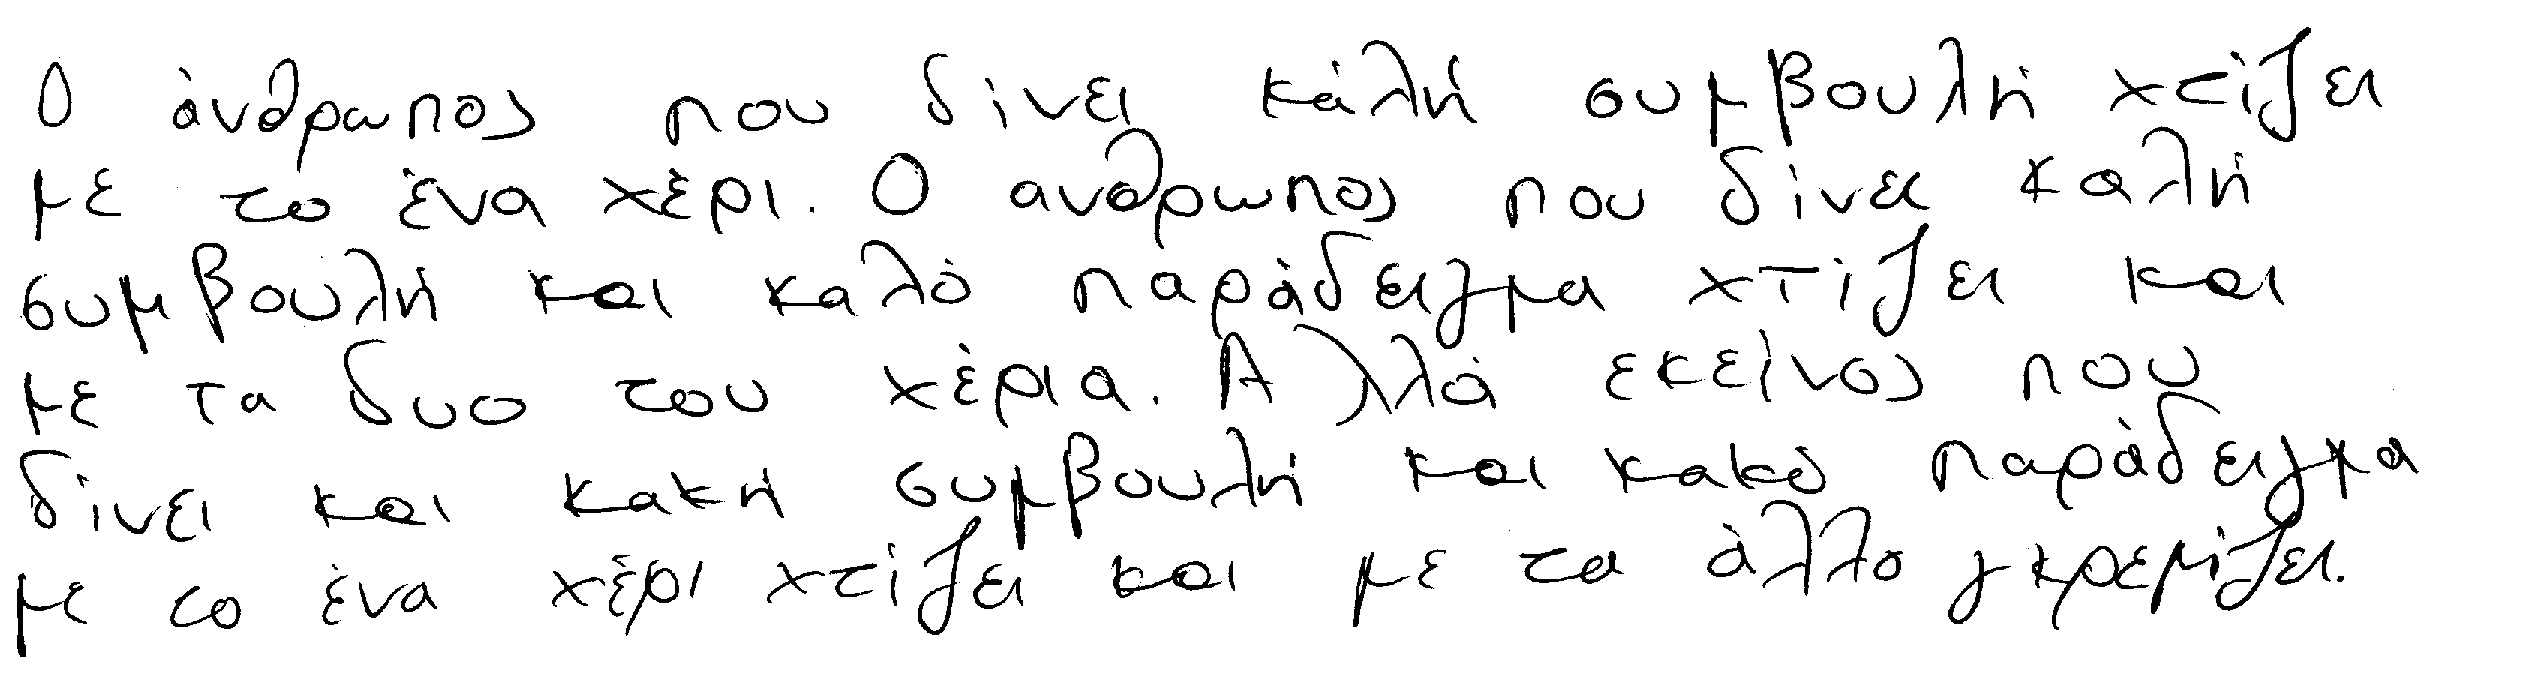 Ο άνθρωπος που δίνει κάλή συμβουλή χτίζει
με το ένα χέρι. Ο ανθρωπος που δίνει καλή
συμβουλή και καλό παράδειγμα χτίζει και
με τα δυο του χέρια. Αλλά εκείνος που
δίνει και κακή συμβουλή και κακό παράδειγμα
με το ένα χέρι χτίζει και με τα άλλο γκρεμίζει.